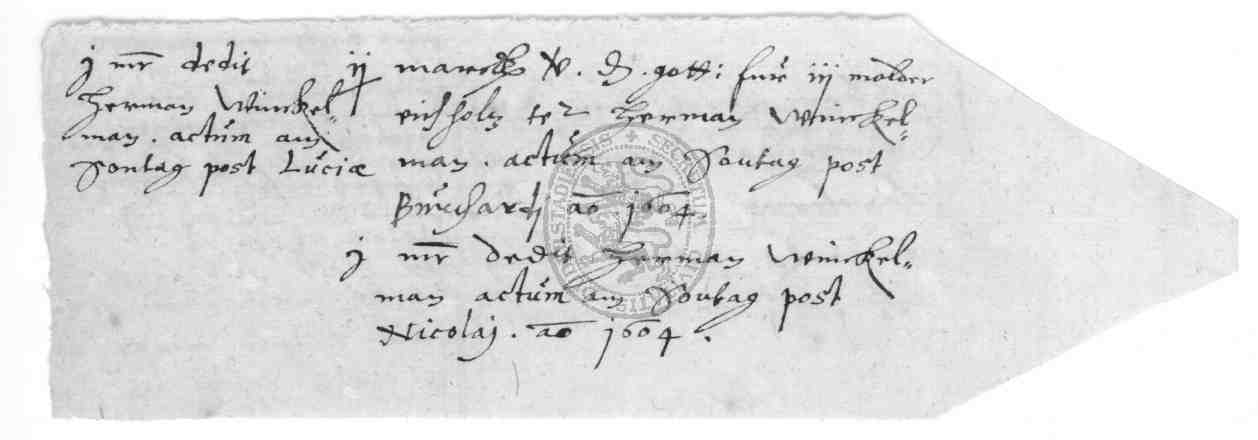 j mr dedit
Herman Winckel„
man . actům am
Sontag post Lůciæ
ij marck . gott: fure iij molder
eichholtz ter Herman Winckel„
man . actům am Sontag post
Bůrchardj ao 1604.
j mr dedit Herman Winckel„
man actům am Sontag post
Nicolaj . ao 1604 .